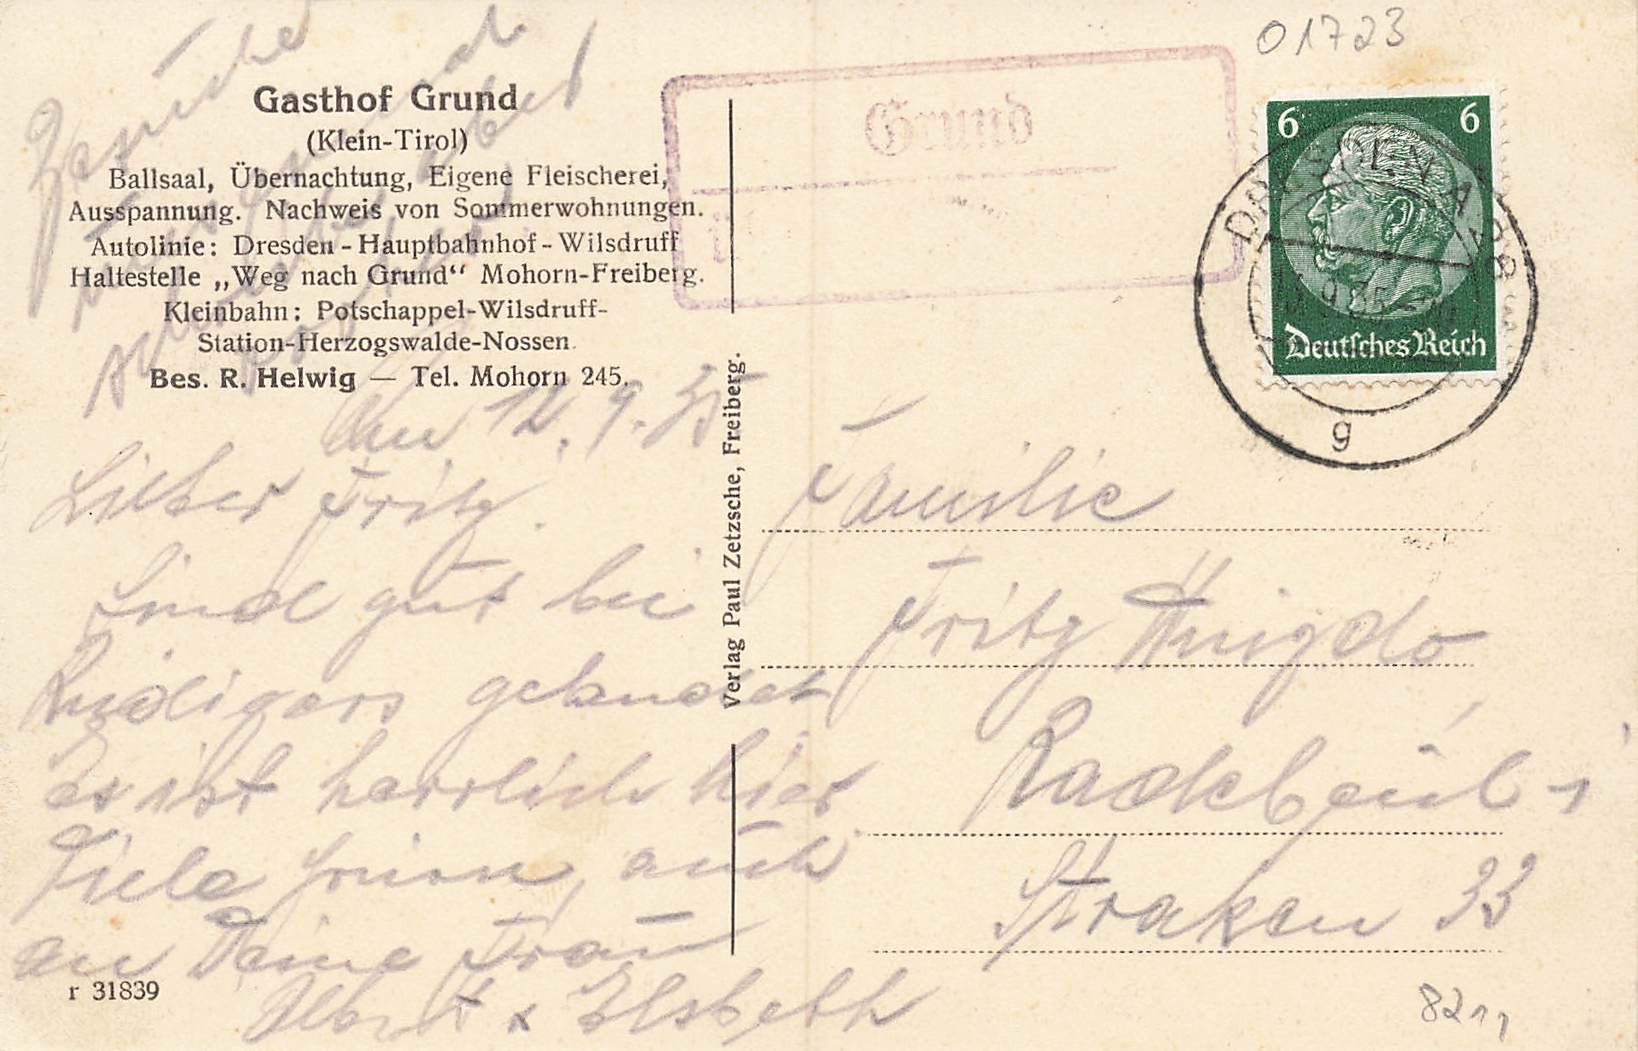 01723
Gasthof Grund
(Klein-Tirol)
Ballsaal, Übernachtung, Eigene Fleischerei,
Ausspannung. Nachweis von Sommerwohnungen.
Autolinie: Dresden - Hauptbahnhof - Wilsdruff
Haltestelle „Weg nach Grund“ Mohorn-Freiberg.
Kleinbahn: Potschappel-Wilsdruff-
Station-Herzogswalde-Nossen.
Bes. R. Helwig — Tel. Mohorn 245.
Grund
6 6
Deutsches Reich
DRESDEN A 28
g
Verlag Paul Zetzsche, Freiberg.
Den 12.9.35
Lieber Fritz.
Sind gut bei
gelandet
es ist herrlich hier
Viele Grüße, auch
an Deine Frau
Albert & Elsbeth
r 31839
Familie
Fritz
Radebeul - 1
33
8211